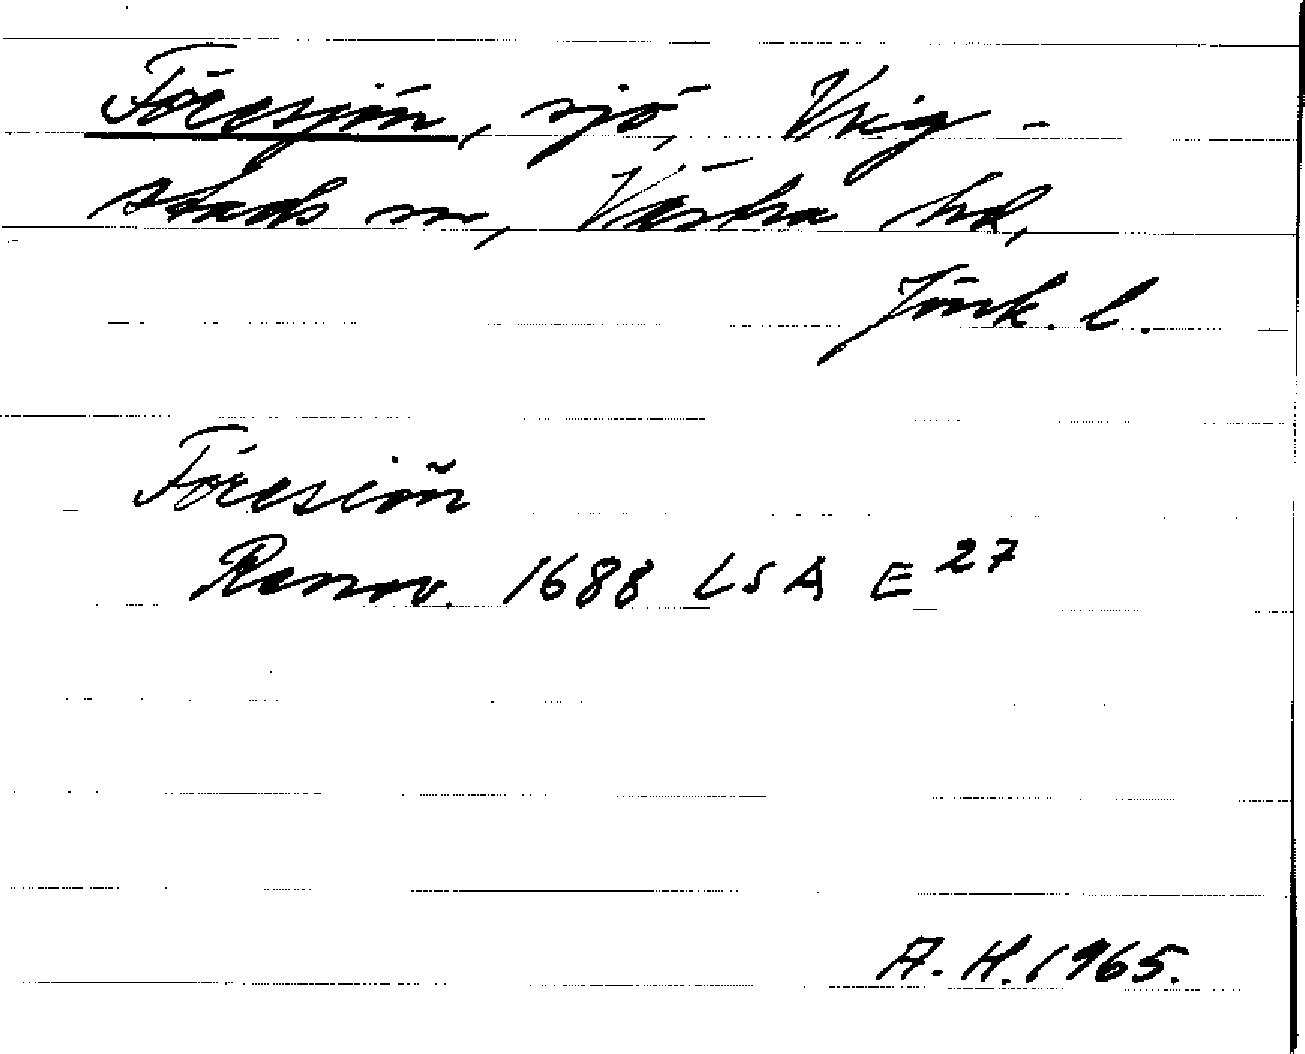 Föresjön, sjö, Vrig-
stads sn, Västra hd,
Jönk. l.
Föresiön̄
Renov. 1688 LSA E 27
A. H. 1965.